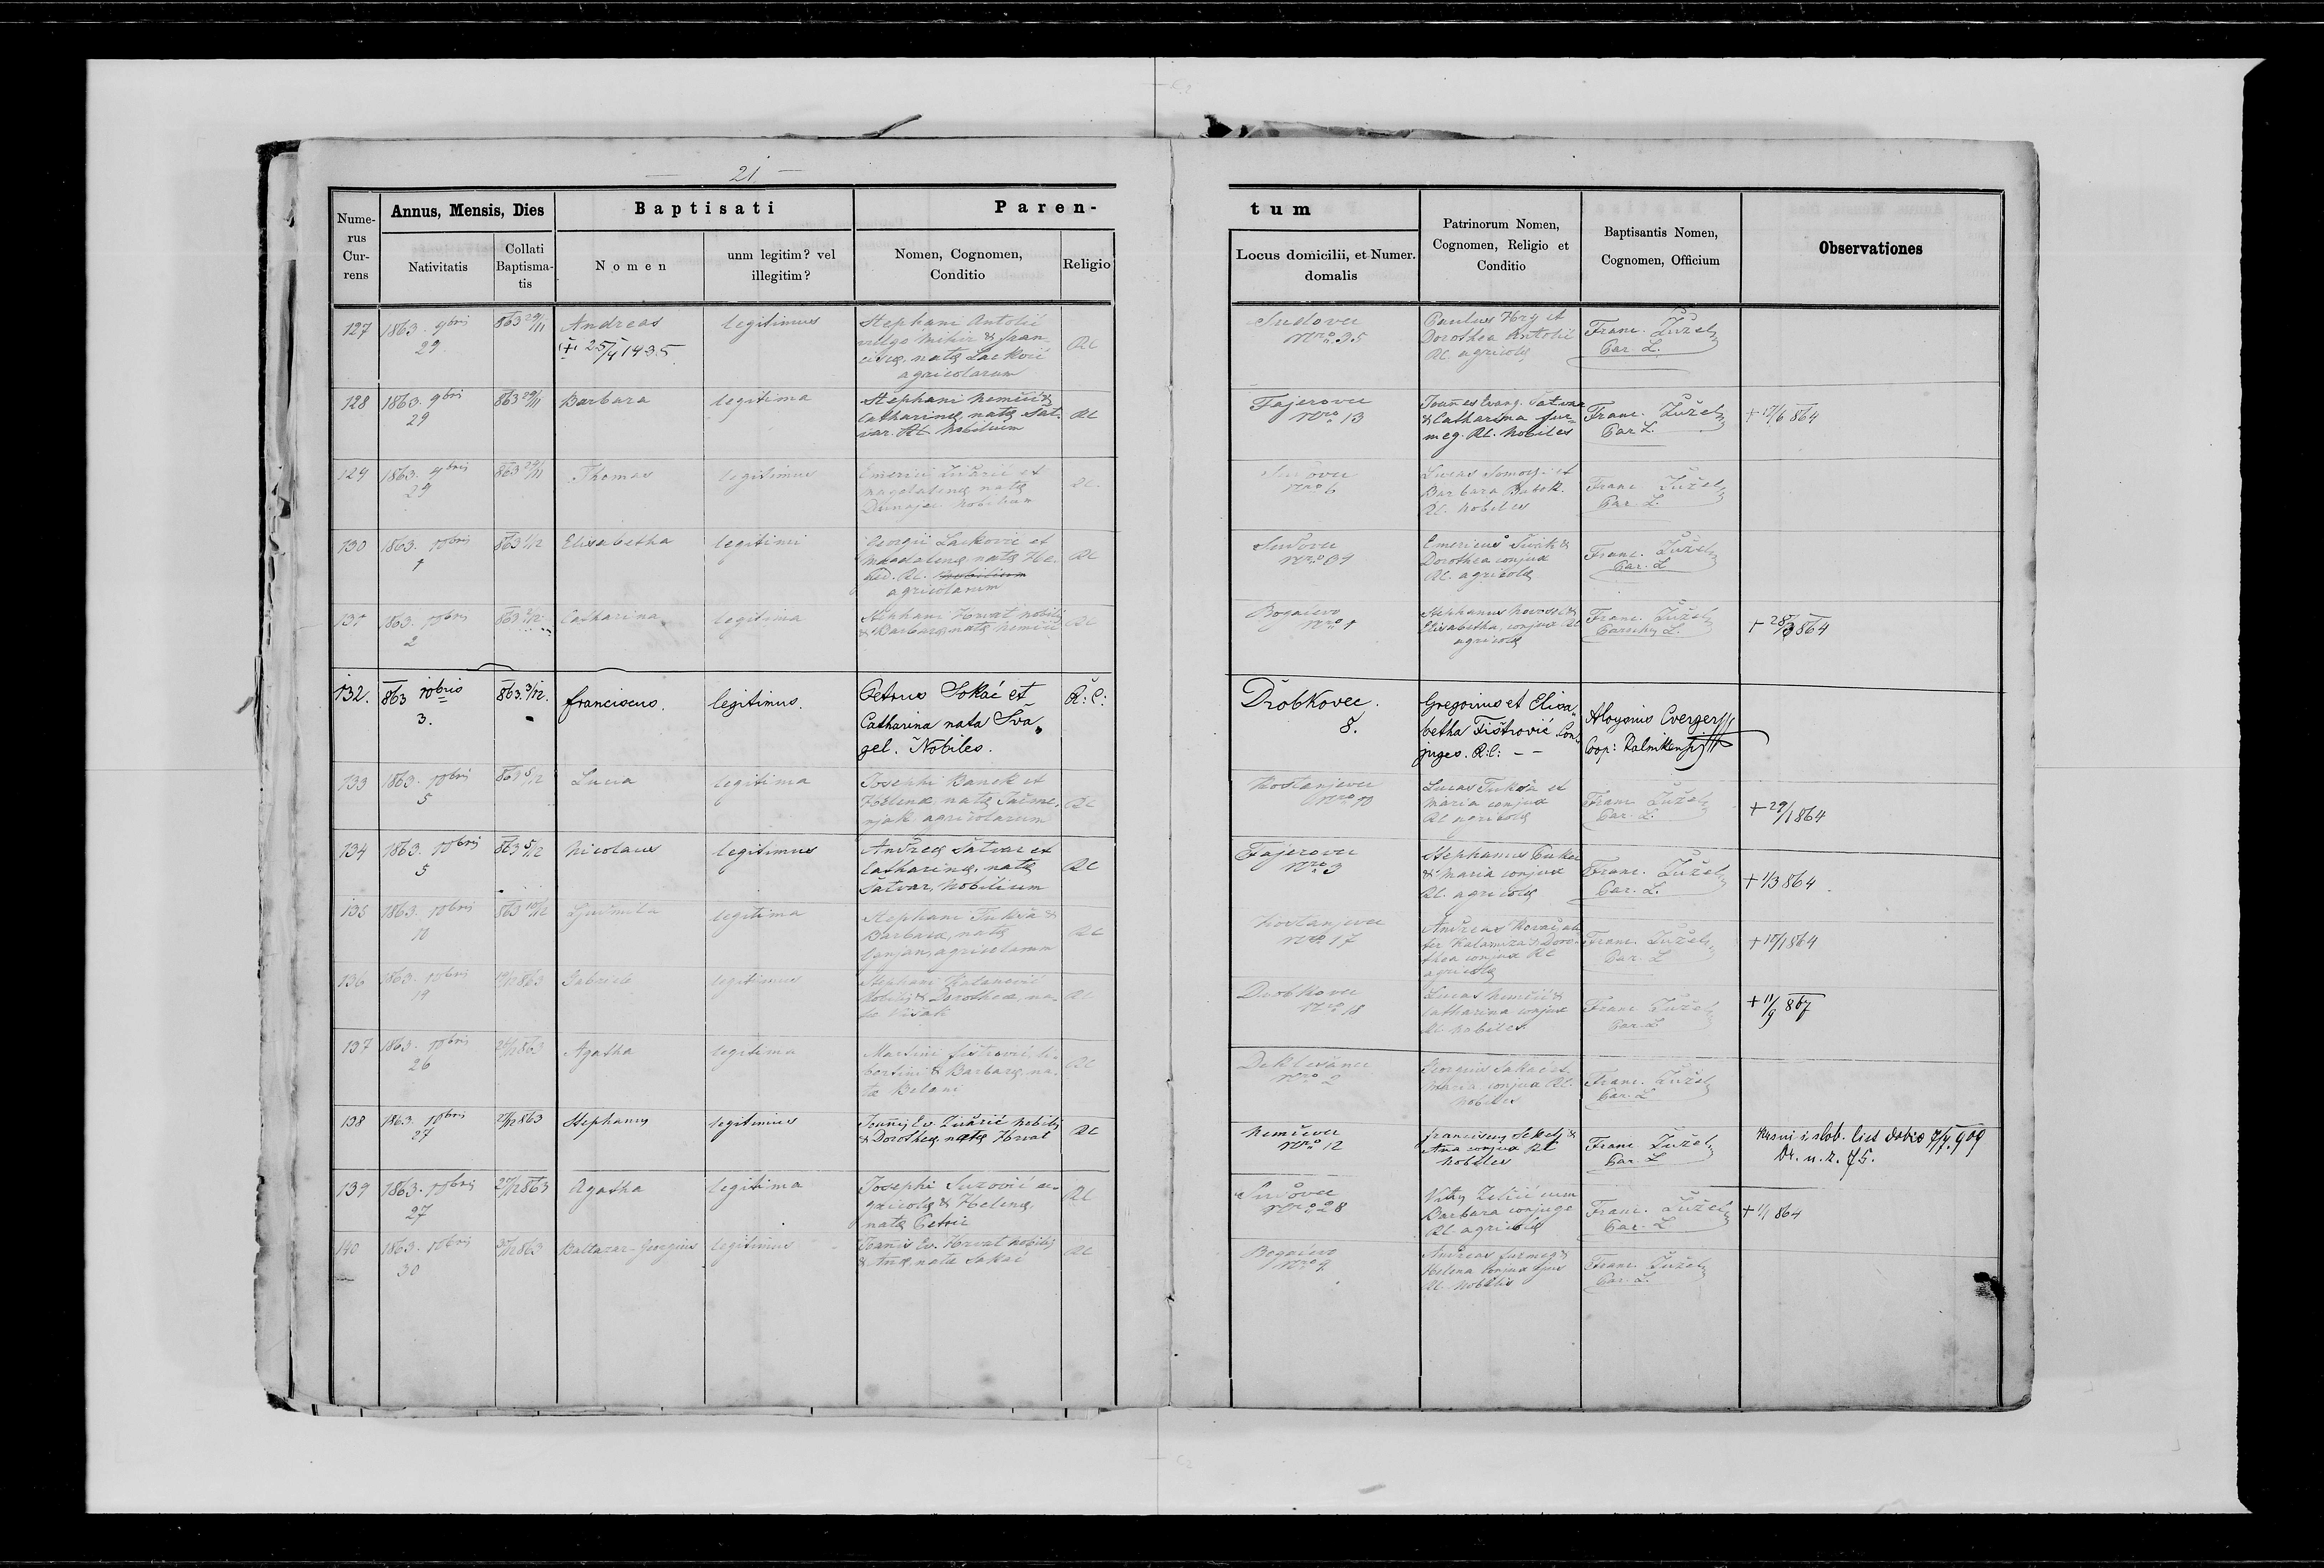 — 21 —
Nume-
rus
Cur-
rens
Annus, Mensis, Dies
Nativitatis
Collati
Baptisma-
tis
Baptisati
Nomen
unm legitim? vel
illegitim?
Paren-
Nomen, Cognomen,
Conditio
Religio
tum
Locus domicilii, et Numer.
domalis
Patrinorum Nomen,
Cognomen, Religio et
Conditio
Baptisantis Nomen,
Cognomen, Officium
Observationes
127
1863. 9bris
29
863 29/11
Andreas
legitimus
Stephani Antolić
vulgo &
natę Lacković
agricolarum
RC
Nro. 35
Paulus et
Dorothea Antolić
RC. agricolę
Franc. Žužel
Par. L.
128
1863. 9bris
29
863 29/11
Barbara
legitima
Stephani Nemčić &
Catharinę, natę Šat-
var. RC Nobilium
RC
Fajerovec
Nro. 13
Joannes Evang. Šatvar
& Catharina fur-
meg. RC. Nobiles
Franc. Žužel
Par L.
+ 17/6 864
129
1863. 9bris
29
863 29/11
Thomas
legitimus
et
Magdalenę natę
Nobilium
RC.
Nro 6
Lucas et
Barbara
RC. Nobiles
Franc. Žužel
Par L.
130
1863. 10bris
1
863 1/12
Elisabetha
legitimi
Georgii Lacković et
Magdalenę natę
RC. Nobilium
agricolarum
RC
Emericus &
Dorothea conjux
RC. agricolę
Franc. Žužel
Par. L
131
1863. 10bris
2
863 2/12
Catharina
legitima
Stephani Horvat Nobilis
& Barbarę natę Nemčić
RC
Bogačevo
Nro 1
Stephanus Novosel &
Elisabetha, conjux RC
agricolę
Franc. Žužel
L.
+ 28/3 864
132.
863 10bris
3.
863. 3/12.
franciscus.
legitimus.
Petrus Sokač et
Catharina nata Šva„
gel. Nobiles.
R: C:
Drobkovec.
8.
Gregorius et Elisa„
betha Fištrović Con„
juges. R:C: — —
Aloysius Cverger
Coop: Kalnikensis
133
1863. 10bris
5
863 5/12
Lucia
legitima
Josephi Banek et
Helenæ, natę Jačme-
njak, agricolarum
RC
Kostanjevec
Nro 10
Lucas Tukša et
Maria conjux
RC agricolę
Franc Žužel
Par. L.
+ 29/1 864
134
1863. 10bris
5
863 5/12
Nicolaus
legitimus
Andreę Šatvar et
Catharinę, natę
Šatvar, Nobilium
RC
Fajerovec
Nro 3
Stephanus
& Maria conjux
RC. agricolę
Franc. Žužel
Par. L.
+ 1/3 864
135
1863. 10bris
10
863 10/12
Ljudmila
legitima
Stephani Tukša &
Barbaræ, natę
agricolarum
RC
Kostanjevec
Nro. 17
Andreas Kovač, ali-
ter & Doro-
thea conjux RC
agricolę
Franc. Žužel
Par. L
+ 10/1 864
136
1863. 10bris
19
19/12 863
Gabriel
legitimus
Stephani
Nobilis & Dorotheæ, na-
tæ Višak
RC
Drobkovec
Nro 18
Lucas Nemčić &
Catharina conjux
RC. Nobiles
Franc Žužel
Par. L
+ 11/9 867
137
1863. 10bris
26
26/12 863
Agatha
legitima
Martini fištrović, li-
bertini & Barbarę, na-
tæ Belani
RC
Deklešanec
Nro 2
Georgius Sokač et
Maria conjux RC.
Nobiles
Franc. Žužel
Par. L
138
1863. 10bris
27
27/12 863
Stephanus
legitimus
Joannis Ev. Nobilis
& Dorotheę, natę Horvat
RC
Nemčevec
Nro. 12
franciscus &
Ana conjux RC
Nobiles
Franc Žužel
Par. L
Krsni i slob. list dobio 7/4. 909
br. u. z. 75.
139
1863. 10bris
27
27/12 863
Agatha
legitima
Josephi a-
gricolę & Helenę,
natę Petric
RC
Nro. 28
Vitus cum
Barbara conjuge
RC agricolę
Franc. Žužel
Par. L
+ 1/1 864
140
1863. 10bris
30
30/12 863
Baltazar-Georgius
legitimus
Joannis Ev. Horvat Nobilis
& Anæ, natæ Sokač
RC
Bogačevo
Nro 4
Andreas furmeg &
Helena conjux ejus
RC. Nobiles
Franc. Žužel
Par. L.